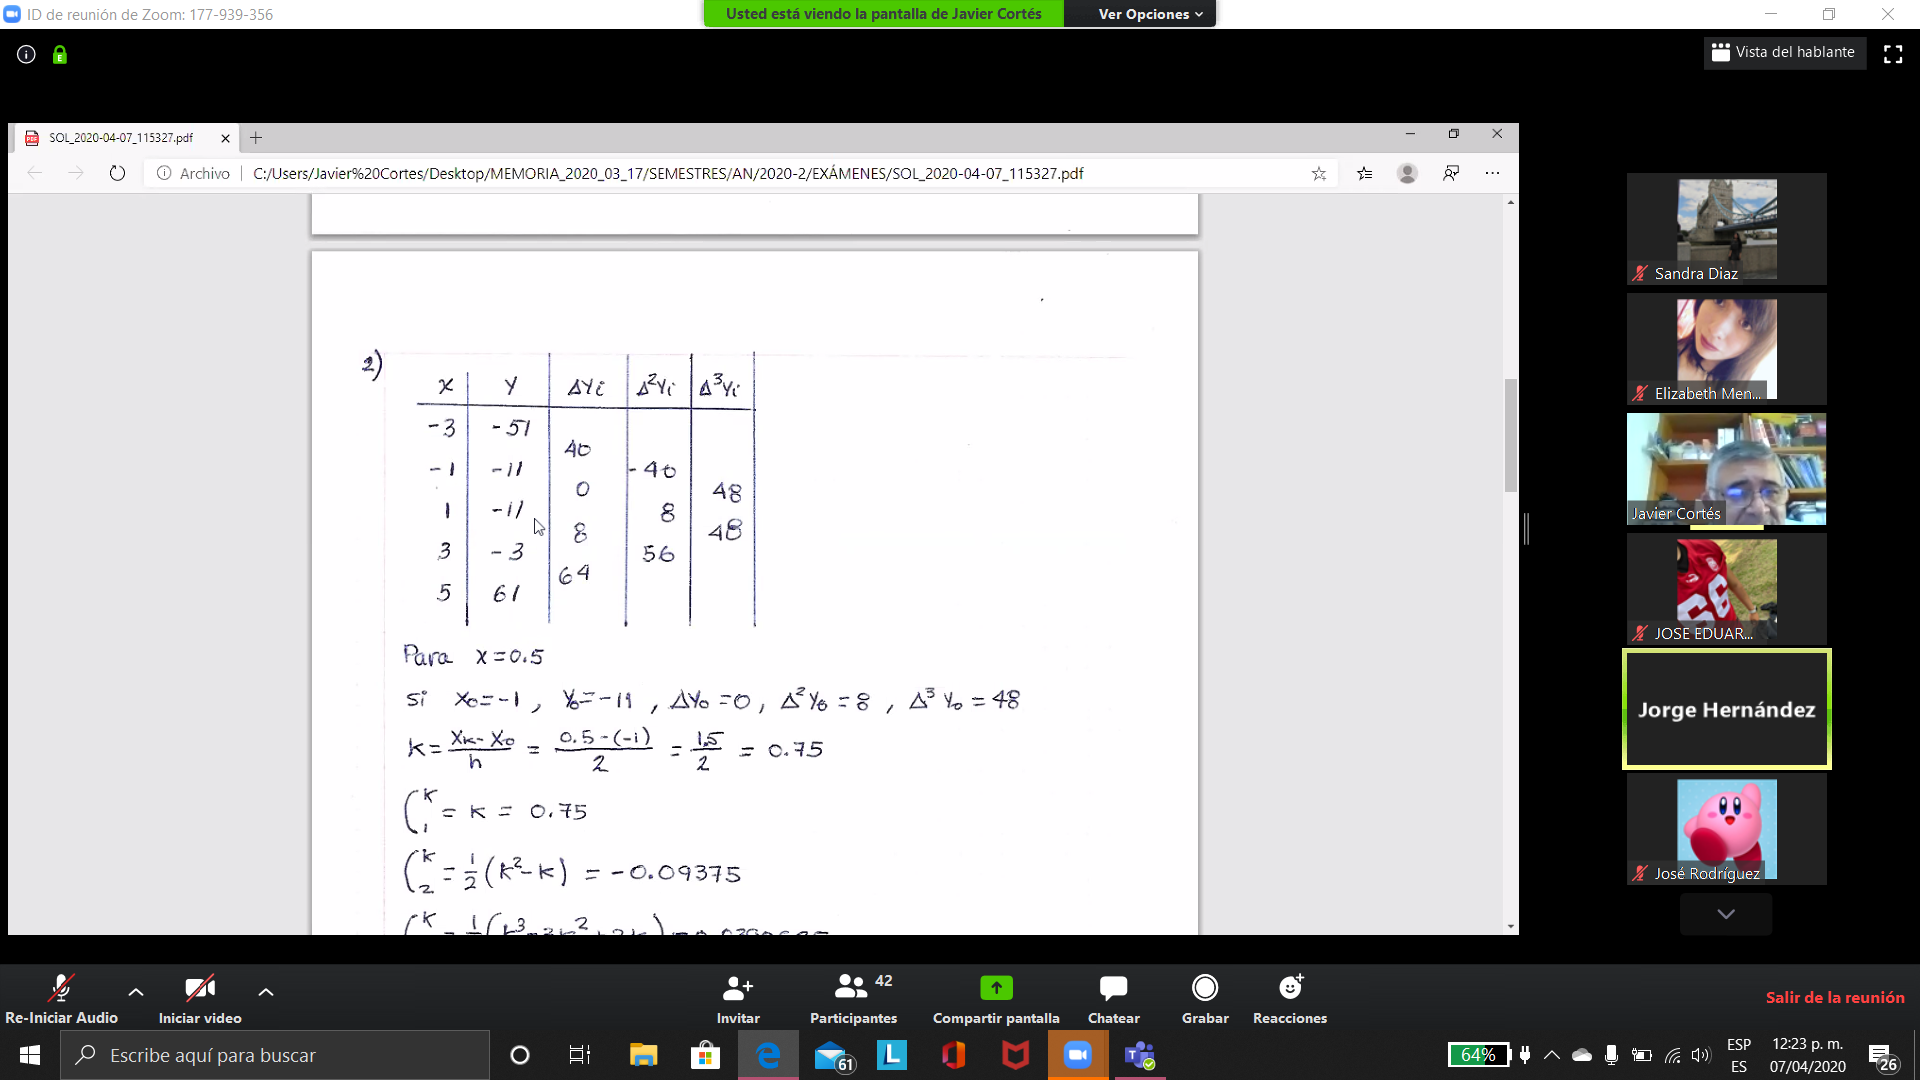 ID de reunión de Zoom: 177-939-356
Usted está viendo la pantalla de Javier Cortés
Ver Opciones
Vista del hablante
SOL_2020-04-07_115327.pdf
Archivo
C:/Users/Javier%20Cortes/Desktop/MEMORIA_2020_03_17/SEMESTRES/AN/2020-2/EXÁMENES/SOL_2020-04-07_115327.pdf
2)
x y Δyi Δ²yi Δ³yi
-3 -51
40
-1 -11 -40
0 48
1 -11 8
8 48
3 -3 56
64
5 61
Para x=0.5
si x₀=-1, y₀=-11, Δy₀=0, Δ²y₀=8, Δ³y₀=48
k = (xk-x₀)/h = (0.5-(-1))/2 = 1.5/2 = 0.75
(k 1 = k = 0.75
(k 2 = 1/2 (k²-k) = -0.09375
Sandra Diaz
Elizabeth Men...
Javier Cortés
JOSE EDUAR...
Jorge Hernández
José Rodríguez
Re-Iniciar Audio
Iniciar video
Invitar
42
Participantes
Compartir pantalla
Chatear
Grabar
Reacciones
Salir de la reunión
Escribe aquí para buscar
61
64%
ESP
ES
12:23 p. m.
07/04/2020
26